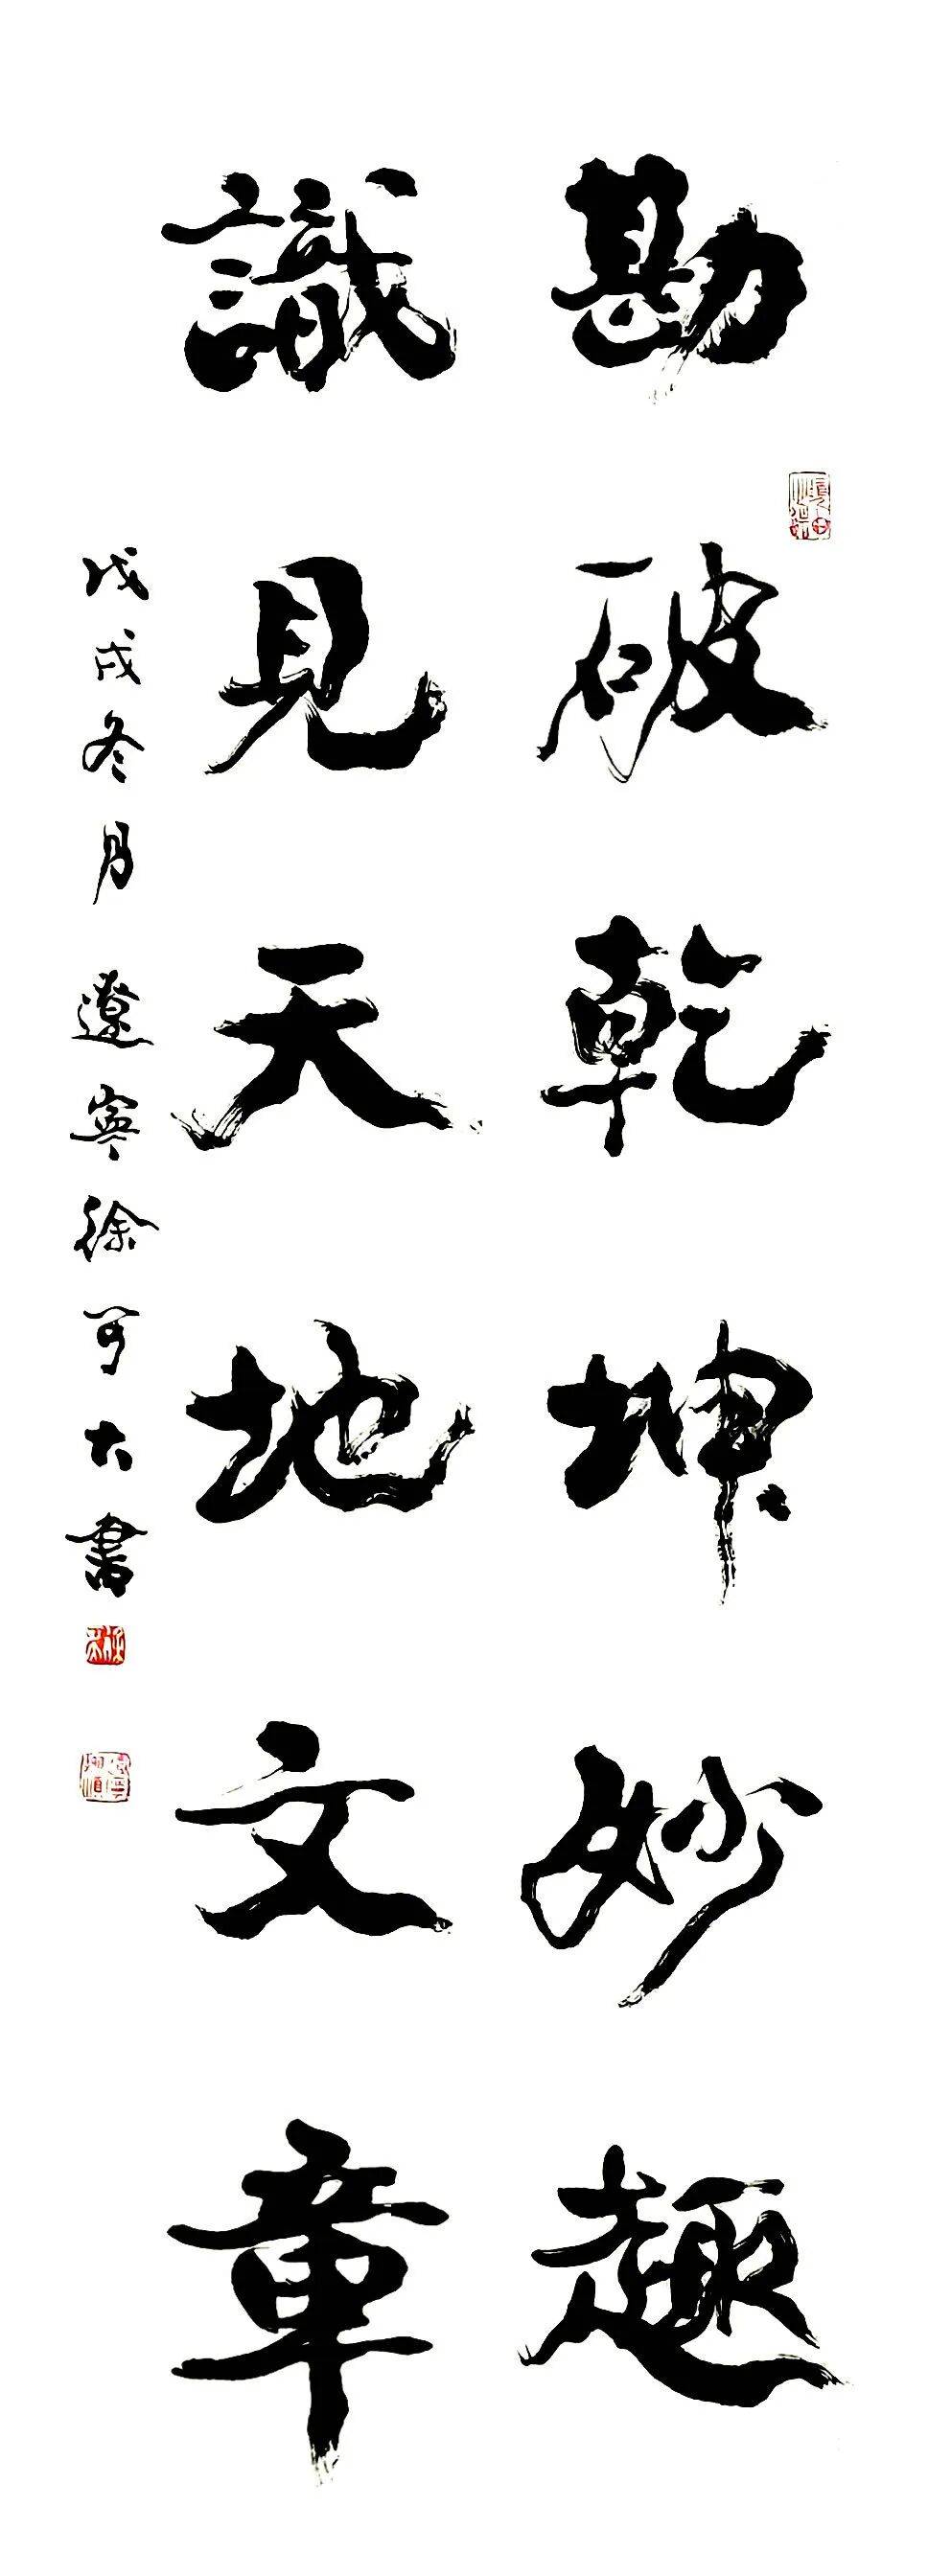 勘破乾坤妙趣
識見天地文章
戊戌冬月遼寧徐可大書